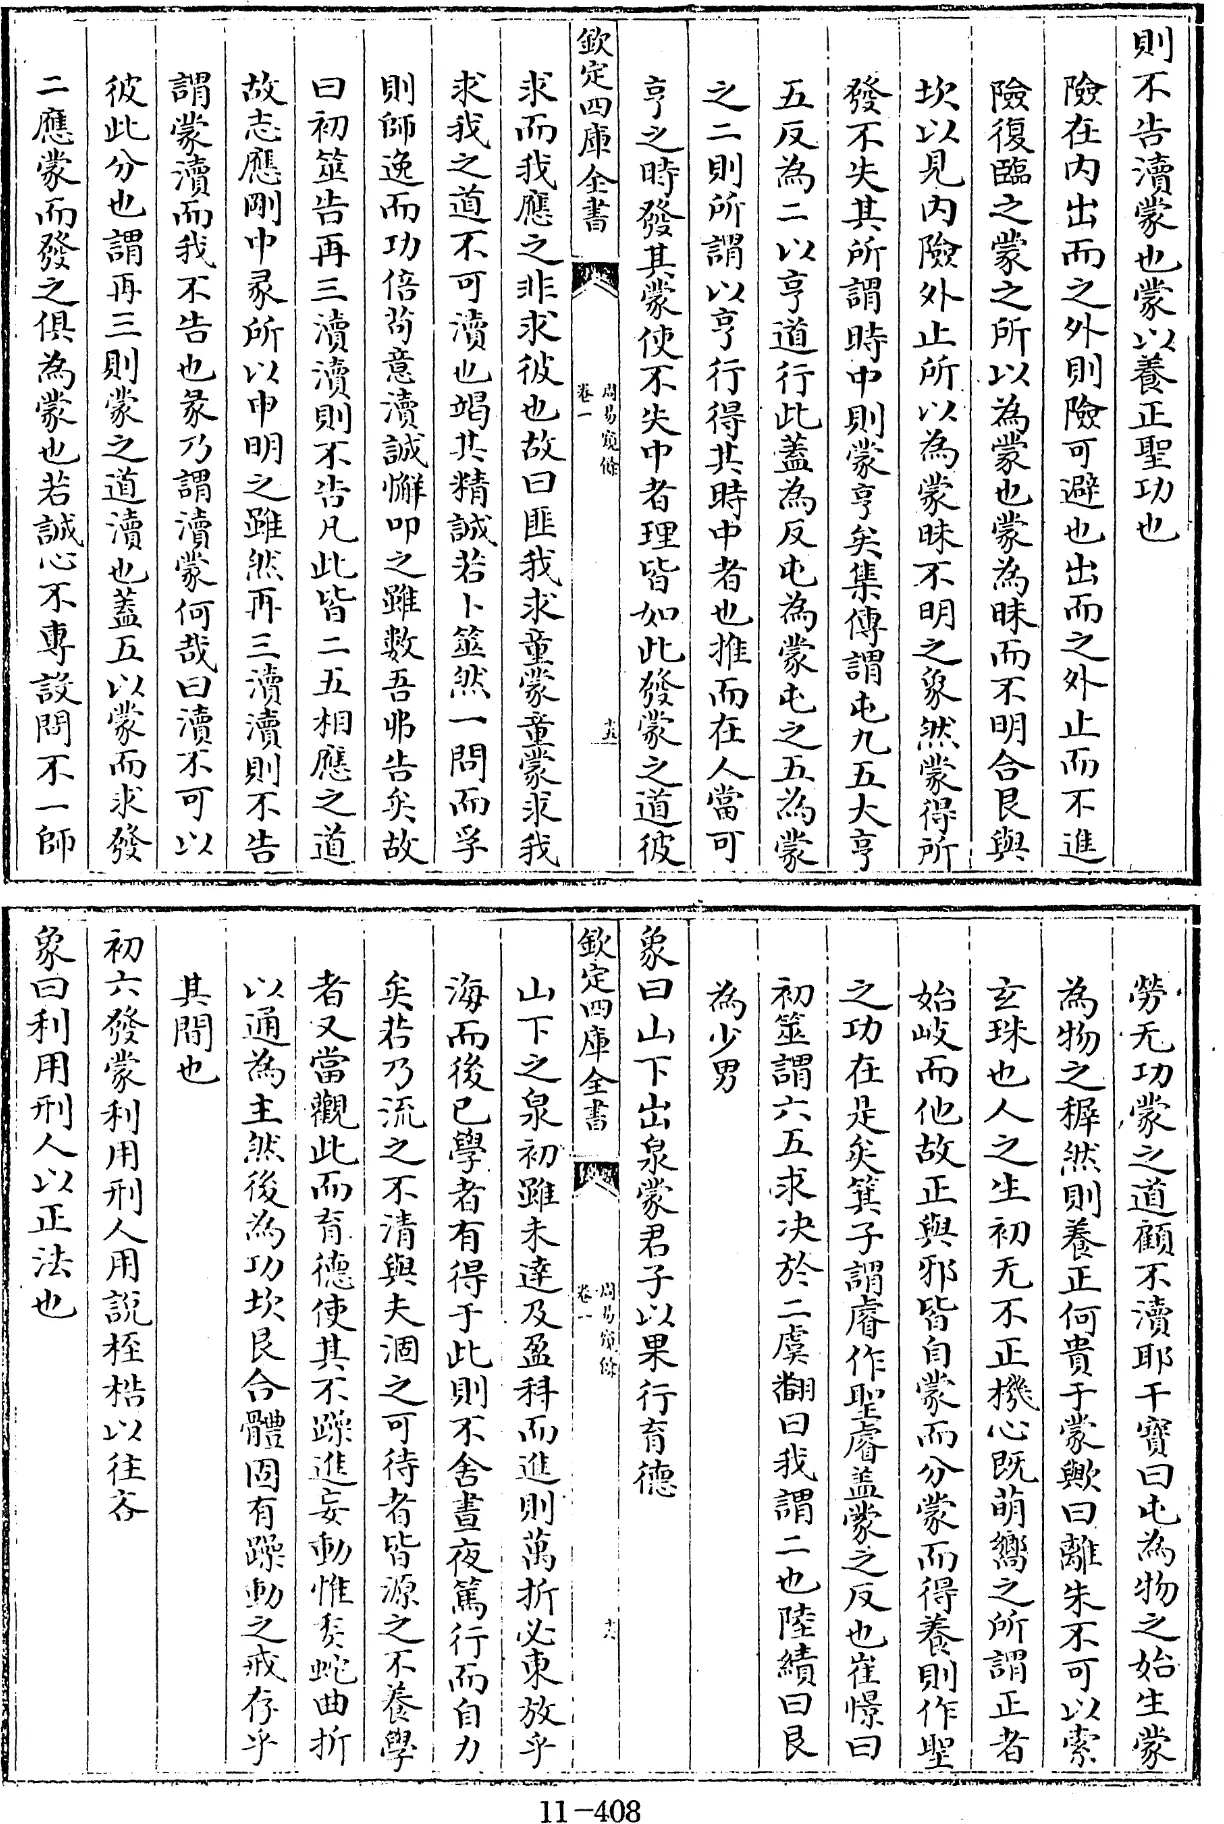 則不告瀆蒙也蒙以養正聖功也
險在内出而之外則險可避也出而之外止而不進
險復臨之蒙之所以為蒙也蒙為昧而不明合艮與
坎以見内險外止所以為蒙昧不明之象然蒙得所
發不失其所謂時中則蒙亨矣集傳謂屯九五大亨
五反為二以亨道行此蓋為反屯為蒙屯之五為蒙
之二則所謂以亨行得其時中者也推而在人當可
亨之時發其蒙使不失中者理皆如此發蒙之道彼
欽定四庫全書
周易窺餘
卷一
十五
求而我應之非求彼也故曰匪我求童蒙童蒙求我
求我之道不可瀆也竭其精誠若卜筮然一問而孚
則師逸而功倍茍意瀆誠懈叩之雖數吾弗告矣故
曰初筮告再三瀆瀆則不告凡此皆二五相應之道
故志應剛中彖所以申明之雖然再三瀆瀆則不告
謂蒙瀆而我不告也彖乃謂瀆蒙何哉曰瀆不可以
彼此分也謂再三則蒙之道瀆也蓋五以蒙而求發
二應蒙而發之俱為蒙也若誠心不專設問不一師
勞无功蒙之道顧不瀆耶干寳曰屯為物之始生蒙
為物之穉然則養正何貴于蒙歟曰離朱不可以索
玄珠也人之生初无不正機心既萌嚮之所謂正者
始岐而他故正與邪皆自蒙而分蒙而得養則作聖
之功在是矣箕子謂睿作聖睿盖蒙之反也崔憬曰
初筮謂六五求决於二虞翻曰我謂二也陸績曰艮
為少男
象曰山下出泉蒙君子以果行育德
欽定四庫全書
周易窺餘
卷一
十六
山下之泉初雖未達及盈科而進則萬折必東放乎
海而後已學者有得于此則不舍晝夜篤行而自力
矣若乃流之不清與夫涸之可待者皆源之不養學
者又當觀此而育德使其不躁進妄動惟委蛇曲折
以通為主然後為功坎艮合體固有躁動之戒存乎
其間也
初六發蒙利用刑人用說桎梏以往吝
象曰利用刑人以正法也
11-408